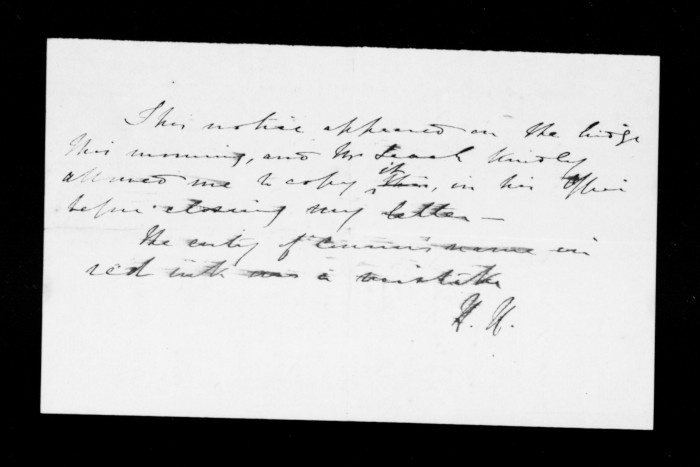 This notice appeared on the bridge
this morning, and Mr Leach kindly
allowed me to copy it, in his Office
before closing my letter —
The entry of name in
red ink was a mistake
H. H.